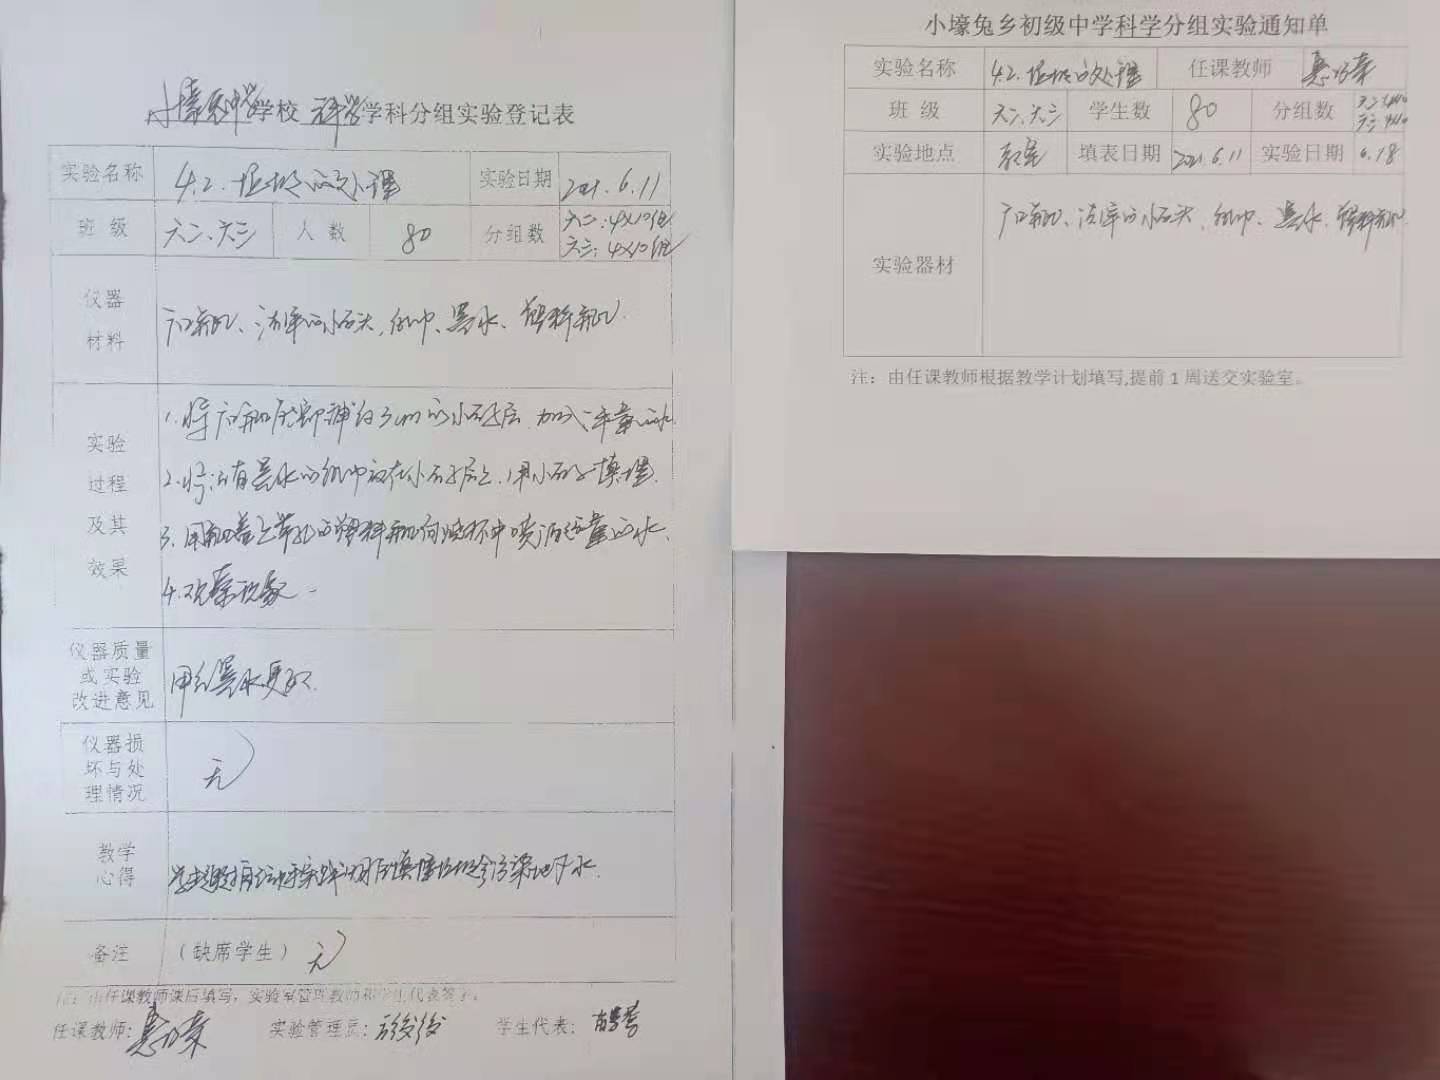 小壕兔中学学校 科学学科分组实验登记表
实验名称 4.2.垃圾的处理 实验日期 2021.6.11
班级 六二、六三 人数 80 分组数 六二:4×10组
六三:4×10组
仪器
材料
广口瓶、洁净的小石头、纸巾、墨水、塑料瓶
实验
过程
及其
效果
1.将广口瓶底部铺约3cm的小石子层,加入少量的水
2.将沾有墨水的纸巾放在小石子层上,用小石子填埋.
3.用瓶盖上带孔的塑料瓶向烧杯中喷洒适量的水.
4.观察现象.
仪器质量
或实验
改进意见
用红墨水更好.
仪器损
坏与处
理情况
无
教学
心得
填埋垃圾会污染地下水.
备注 (缺席学生) 无
注:由任课教师课后填写,实验室管理教师和学生代表签字。
任课教师: 实验管理员: 学生代表:
小壕兔乡初级中学科学分组实验通知单
实验名称 4.2.垃圾的处理 任课教师
班级 六二、六三 学生数 80 分组数 六二:4×10
六三:4×10
实验地点 教室 填表日期 2021.6.11 实验日期 6.18
实验器材
广口瓶、洁净的小石头、纸巾、墨水、塑料瓶
注:由任课教师根据教学计划填写,提前1周送交实验室。